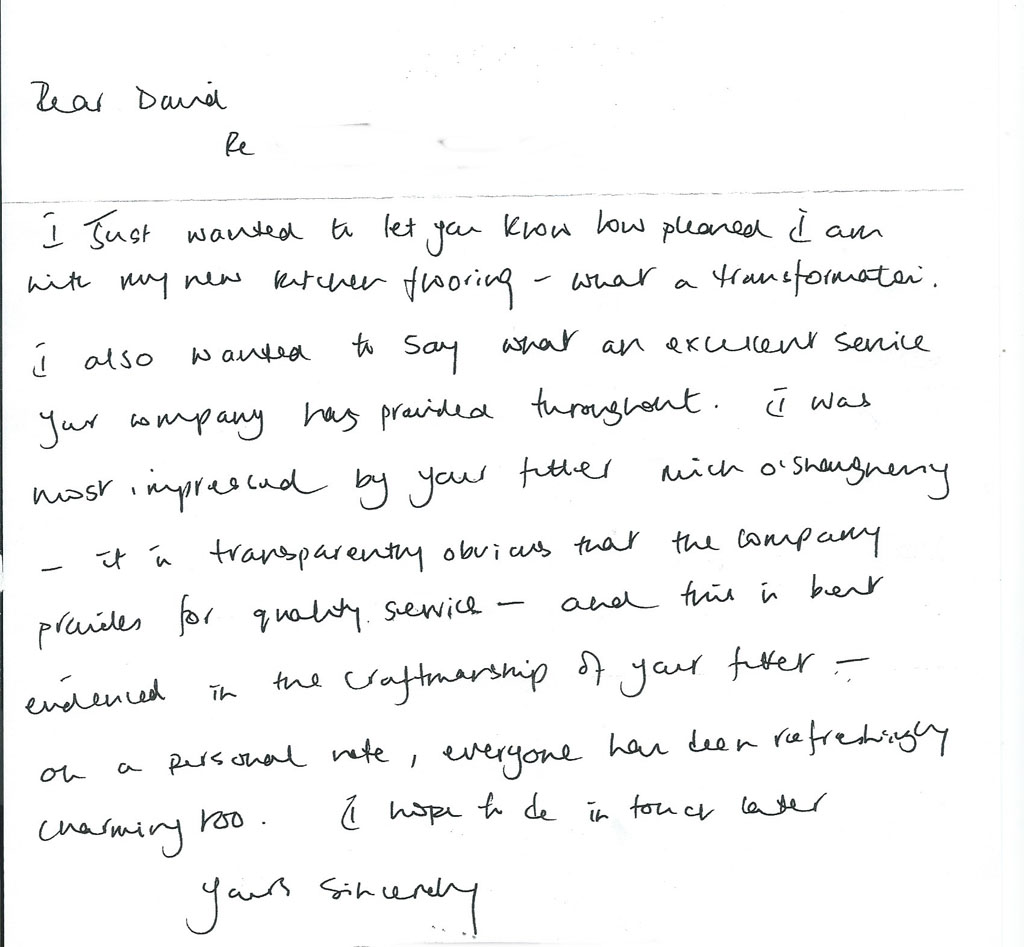 Dear David
Re
I Just wanted to let you know how pleased I am
with my new kitchen flooring - what a transformation.
I also wanted to say what an excellent service
your company has provided throughout. I was
most impressed by your fitter Mick O'Shaughnessy
- it is transparently obvious that the company
provides for quality service - and this is best
evidenced in the craftmanship of your fitter -
on a personal note, everyone has been refreshingly
charming too. I hope to be in touch later
Yours Sincerely